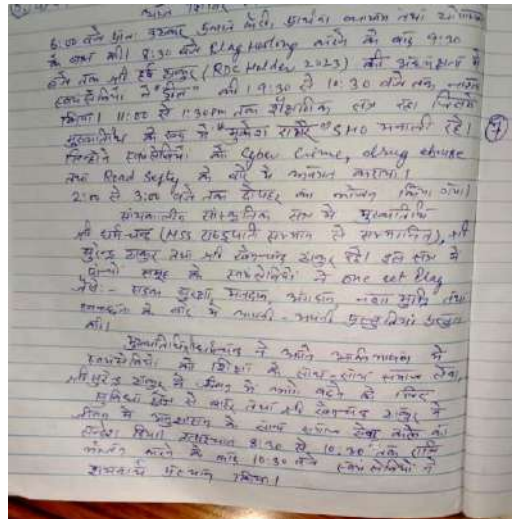 6:00 बजे प्रातः उठकर प्रभात फेरी, प्रार्थना व्यायाम तथा योगासन
के साथ की। 8:30 बजे Flag Hosting करने के बाद 9:30
बजे तक श्री हर्ष ठाकुर (RDC Holder 2023) की अध्यक्षता में
स्वयंसेवियों ने "ड्रील" की। 9:30 से 10:30 बजे तक नाश्ता
किया। 11:00 से 1:30pm तक शैक्षणिक सत्र रहा जिसमें
मुख्यातिथि के रूप में "मुकेश राठौर" SHO मनाली रहे।
जिन्होंने स्वयंसेवियों को Cyber Crime, drug abuse
तथा Road Safty के बारे में अवगत कराया।
7
2:00 से 3:00 बजे तक दोपहर का भोजन किया गया।
सांयकालीन सांस्कृतिक सत्र में मुख्यातिथि
श्री धर्म चन्द (NSS राष्ट्रपति सम्मान से सम्मानित), श्री
सुरेन्द्र ठाकुर तथा श्री ठाकुर रहे। इस सत्र में
समूह के स्वयंसेवियों ने one act Play
जैसे:- सड़क सुरक्षा, मतदान, अंगदान, नशा मुक्ति तथा
के बारे में अपनी-अपनी प्रस्तुतियां प्रस्तुत
की।
मुख्यातिथि ने अपने अभिभाषण में
स्वयंसेवियों को शिक्षा के साथ-साथ समाज सेवा,
श्री सुरेन्द्र ठाकुर ने जीवन में आगे बढ़ने के लिए
तथा श्री ठाकुर ने
जीवन में अनुशासन के साथ समाज सेवा करने का
संदेश दिया। तत्पश्चात 8:30 से 10:30 तक रात्रि
भोजन करने के बाद 10:30 बजे स्वयंसेवियों ने
प्रस्थान किया।